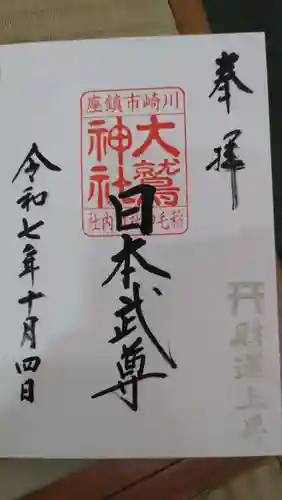 奉拝
川崎市鎮座
大鷲
神社
稲毛神社内社
日本武尊
令和七年十月四日